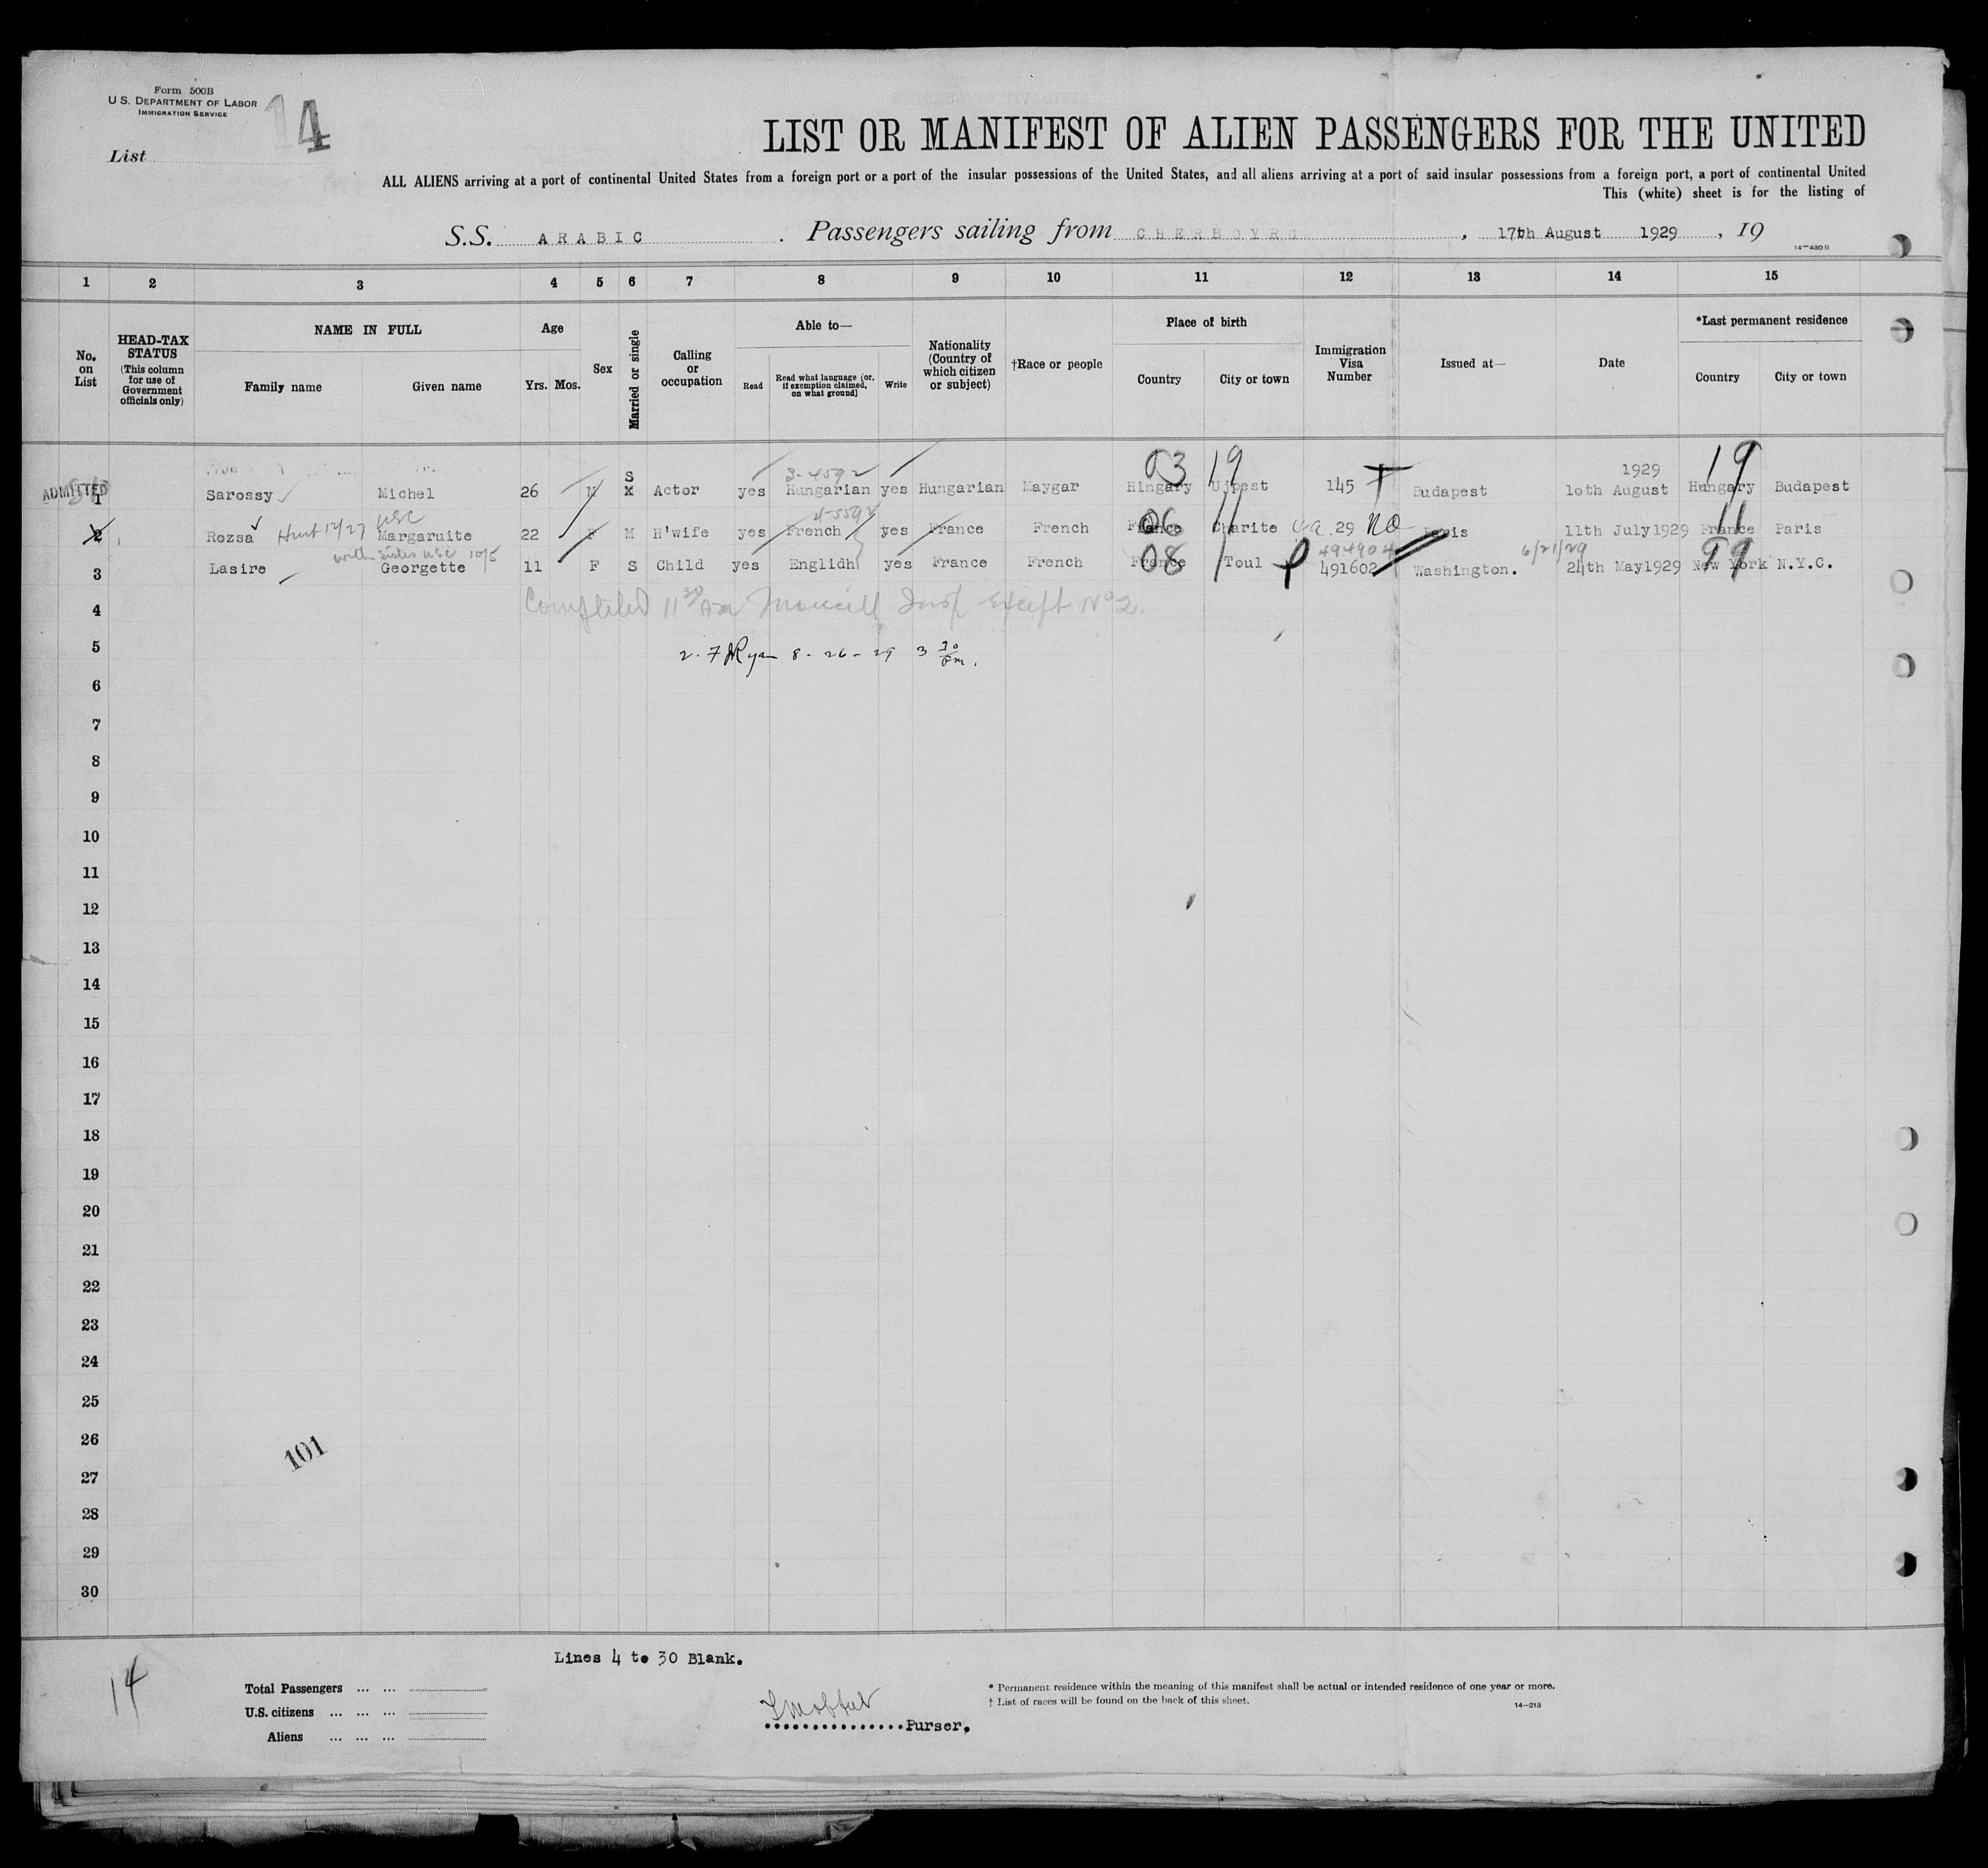 Form 500B
U. S. DEPARTMENT OF LABOR
IMMIGRATION SERVICE
14
List
LIST OR MANIFEST OF ALIEN PASSENGERS FOR THE UNITED
ALL ALIENS arriving at a port of continental United States from a foreign port or a port of the insular possessions of the United States, and all aliens arriving at a port of said insular possessions from a foreign port, a port of continental United
This (white) sheet is for the listing of
S.S. ARABIC. Passengers sailing from CHERBOYRG, 17th August 1929, 19
14—430 B
1 2 3 4 5 6 7 8 9 10 11 12 13 14 15
No. on List
HEAD-TAX STATUS (This column for use of Government officials only)
NAME IN FULL
Family name Given name
Age
Yrs. Mos.
Sex
Married or single
Calling or occupation
Able to—
Read
Read what language (or, if exemption claimed, on what ground)
Write
Nationality (Country of which citizen or subject)
†Race or people
Place of birth
Country City or town
Immigration Visa Number
Issued at—
Date
*Last permanent residence
Country City or town
03 19 19
3-4592 S 1929
ADMITTED 1 Sarossy Michel 26 M X Actor yes Hungarian yes Hungarian Maygar Hingary Ujpest 145 Budapest 10th August Hungary Budapest
USC 4-5592 06 11 11
2 Rozsa Hunt 12/27 Margaruite 22 F M H'wife yes French yes France French France Charite 29 NO Paris 11th July 1929 France Paris
with sister USC 10/5 08 494904 6/21/29 99
3 Lasire Georgette 11 F S Child yes Englidh yes France French France Toul 491602 Washington. 24th May 1929 New York N.Y.C.
4 Completed 11 30 Am Insp Except No 2.
5 2. F J Ryan 8-26-29 3 30 Pm.
6
7
8
9
10
11
12
13
14
15
16
17
18
19
20
21
22
23
24
25
26
101
27
28
29
30
Lines 4 to 30 Blank.
14
Total Passengers ... ...
U.S. citizens ... ... ...
Aliens ... ... ...
Purser.
* Permanent residence within the meaning of this manifest shall be actual or intended residence of one year or more.
† List of races will be found on the back of this sheet.
14—213